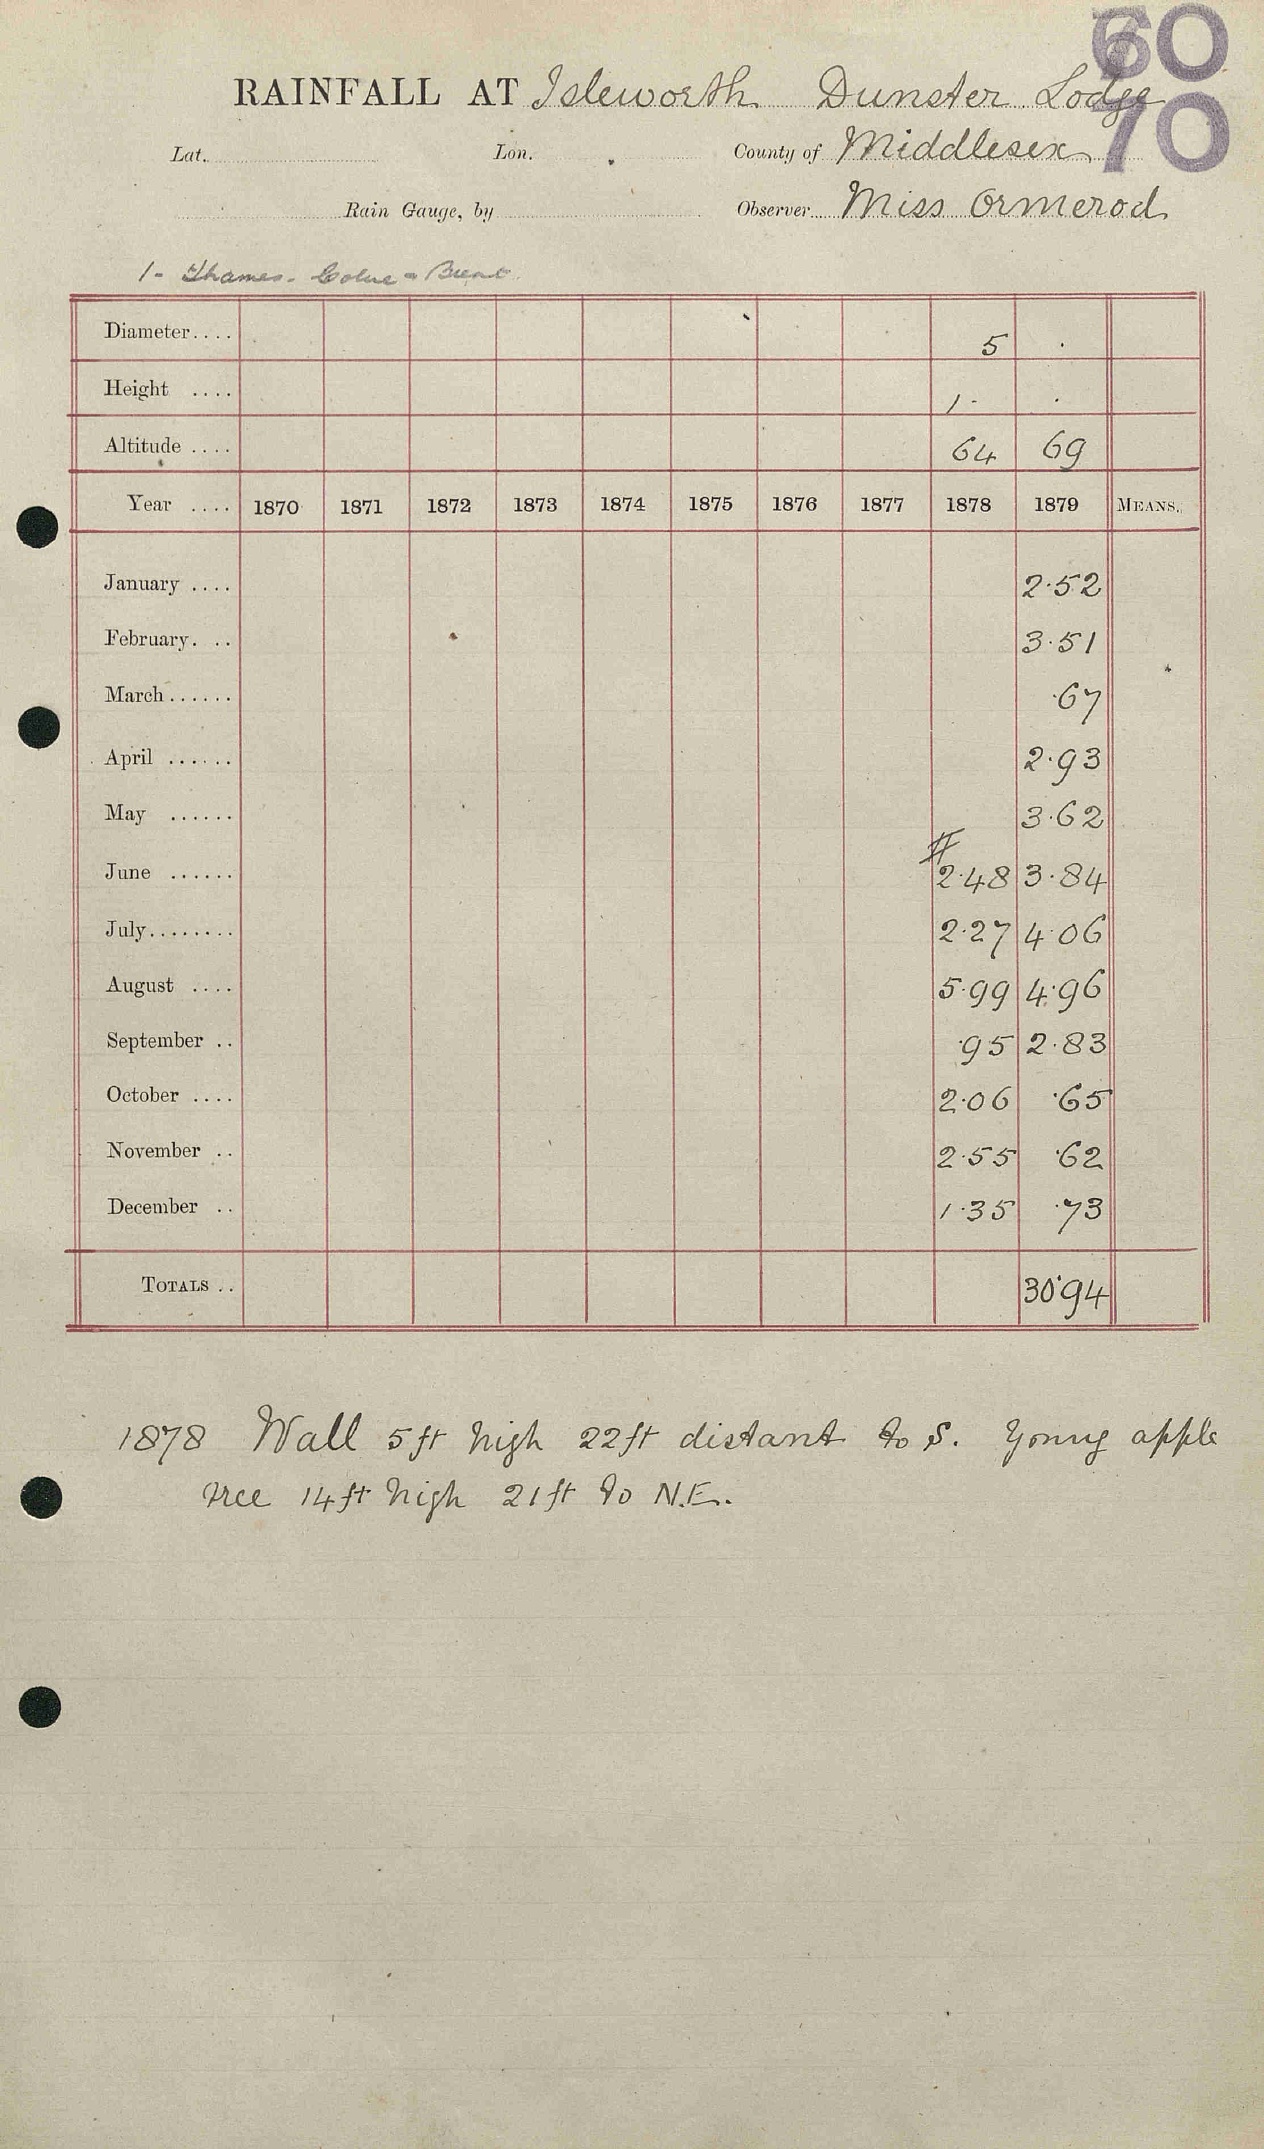 60
70
RAINFALL AT Isleworth Dunster Lodge
Lat. Lon. County of Middlesex
Rain Gauge, by Observer Miss Ormerod
1 - Thames - Colne - Brent
Diameter.... 5 .
Height .... 1 - .
Altitude .... 64 69
Year .... 1870 1871 1872 1873 1874 1875 1876 1877 1878 1879 MEANS.
January .... 2.52
February. .. 3.51
March...... .67
April ...... 2.93
May ...... 3.62
June ...... # 2.48 3.84
July........ 2.27 4.06
August .... 5.99 4.96
September .. .95 2.83
October .... 2.06 .65
November .. 2.55 .62
December .. 1.35 .73
TOTALS .. 30.94
1878 Wall 5 ft high 22 ft distant to S. Young apple
tree 14 ft high 21 ft to N.E.